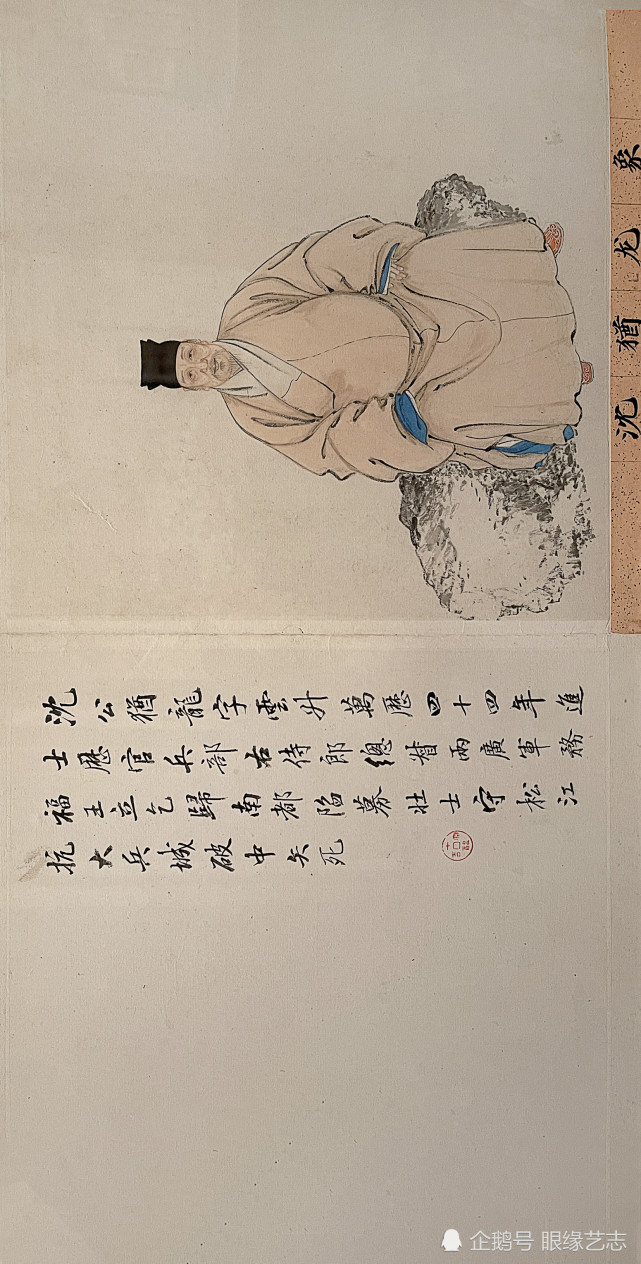 沈猶龙象
沈公猶龍字雲升萬歷四十四年進
士歷官兵部右侍郎總督兩廣軍務
福王立乞歸南都陷募壯士守松江
抗大兵城破中矢死
企鹅号 眼缘艺志